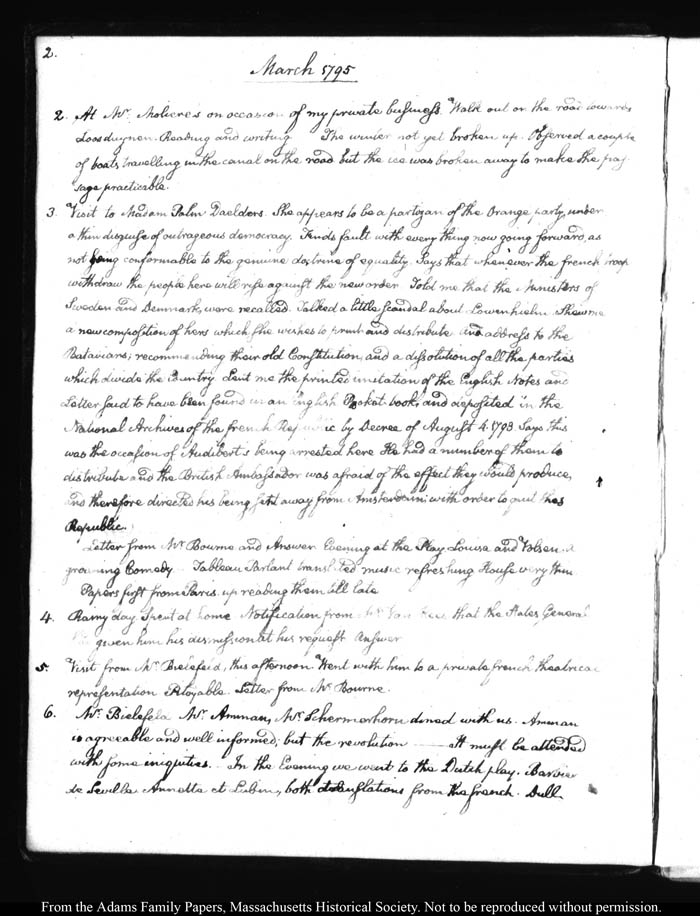 2.
March 1795
2. At Mr. Moliere's on occasion of my private business. Walk out on the road towards
Loosduynen. Reading and writing. The winter not yet broken up. Observed a couple
of boats travelling in the canal on the road but the ice was broken away to make the pas-
sage practicable.
3. Visit to Madam Palm Daelders. She appears to be a partizan of the Orange party, under
a thin disguise of outrageous democracy. Finds fault with every thing now going forward, as
not being conformable to the genuine doctrine of equality. Says that whenever the french troops
withdraw the people here will rise against the new order. Told me that the Ministers of
Sweden and Denmark, were recalled. Talked a little scandal about Lowenhielm. Shew me
a new composition of hers which she wishes to print and distribute and address to the
Batavians; recommending their old Constitution, and a dissolution of all the parties
which divide the Country. Lent me the printed imitation of the English Notes and
Letter said to have been found in an English Pocket book, and deposited in the
National Archives of the french Republic by Decree of August 4. 1793. Says this
was the occasion of Audibert's being arrested here. He had a number of them to
distribute and the British Ambassador was afraid of the effect they would produce,
and therefore directed his being sent away from Amsterdam: with order to quit this
Republic.
Letter from Mr Bourne and Answer. Evening at the Play. Louisa and Volsen. A
groaning Comedy. Tableau Parlant translated music refreshing. House very thin.
Papers first from Paris. up reading them till late
4. Rainy day. Spent at home. Notification from that the States General
given him his dismission at his request. Answer
5. Visit from Mr. Bielefeld, this afternoon. Went with him to a private french theatrical
representation. Pitoyable. Letter from Mr. Bourne.
6. Mr. Bielefeld Mr. Amman, Mr. Schermerhorn dined with us. Amman
is agreeable and well informed; but the revolution —— It must be attended
with some iniquities. In the Evening we went to the Dutch play. Barbier
de Seville. Annette et Lubin, both translations from the french. Dull
From the Adams Family Papers, Massachusetts Historical Society. Not to be reproduced without permission.